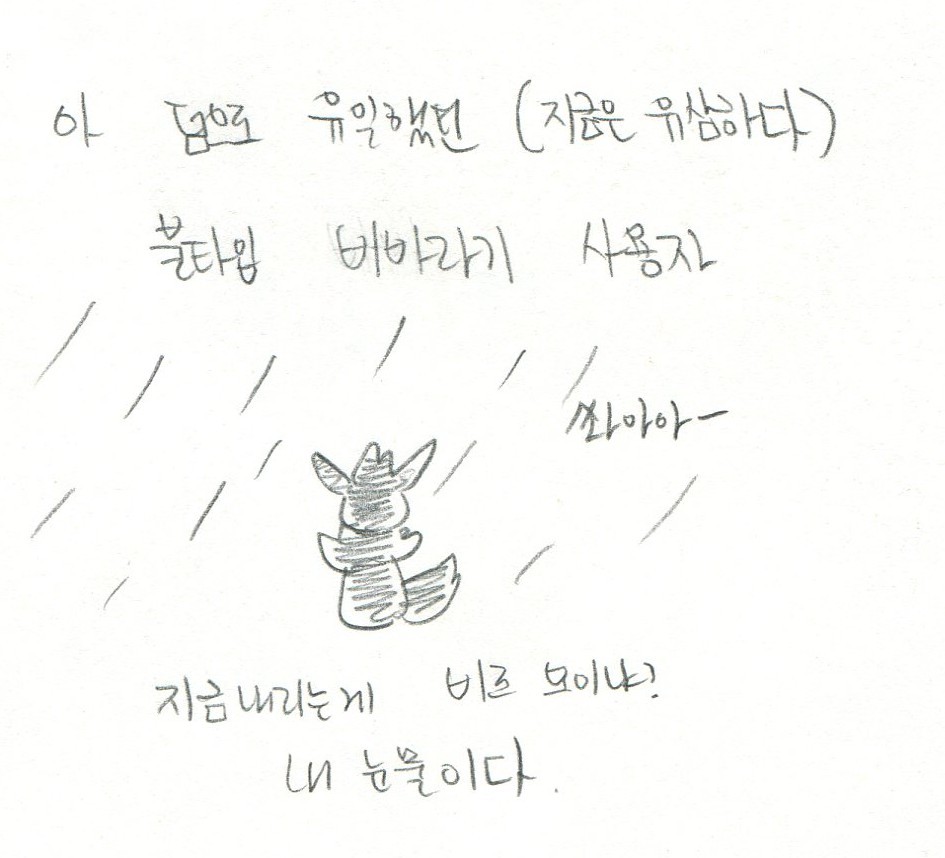 아 덤으로 유일했던 (지금은 유삼하다)
불타입 비바라기 사용자
쏴아아-
지금내리는게 비르 보이냐?
내 눈물이다.